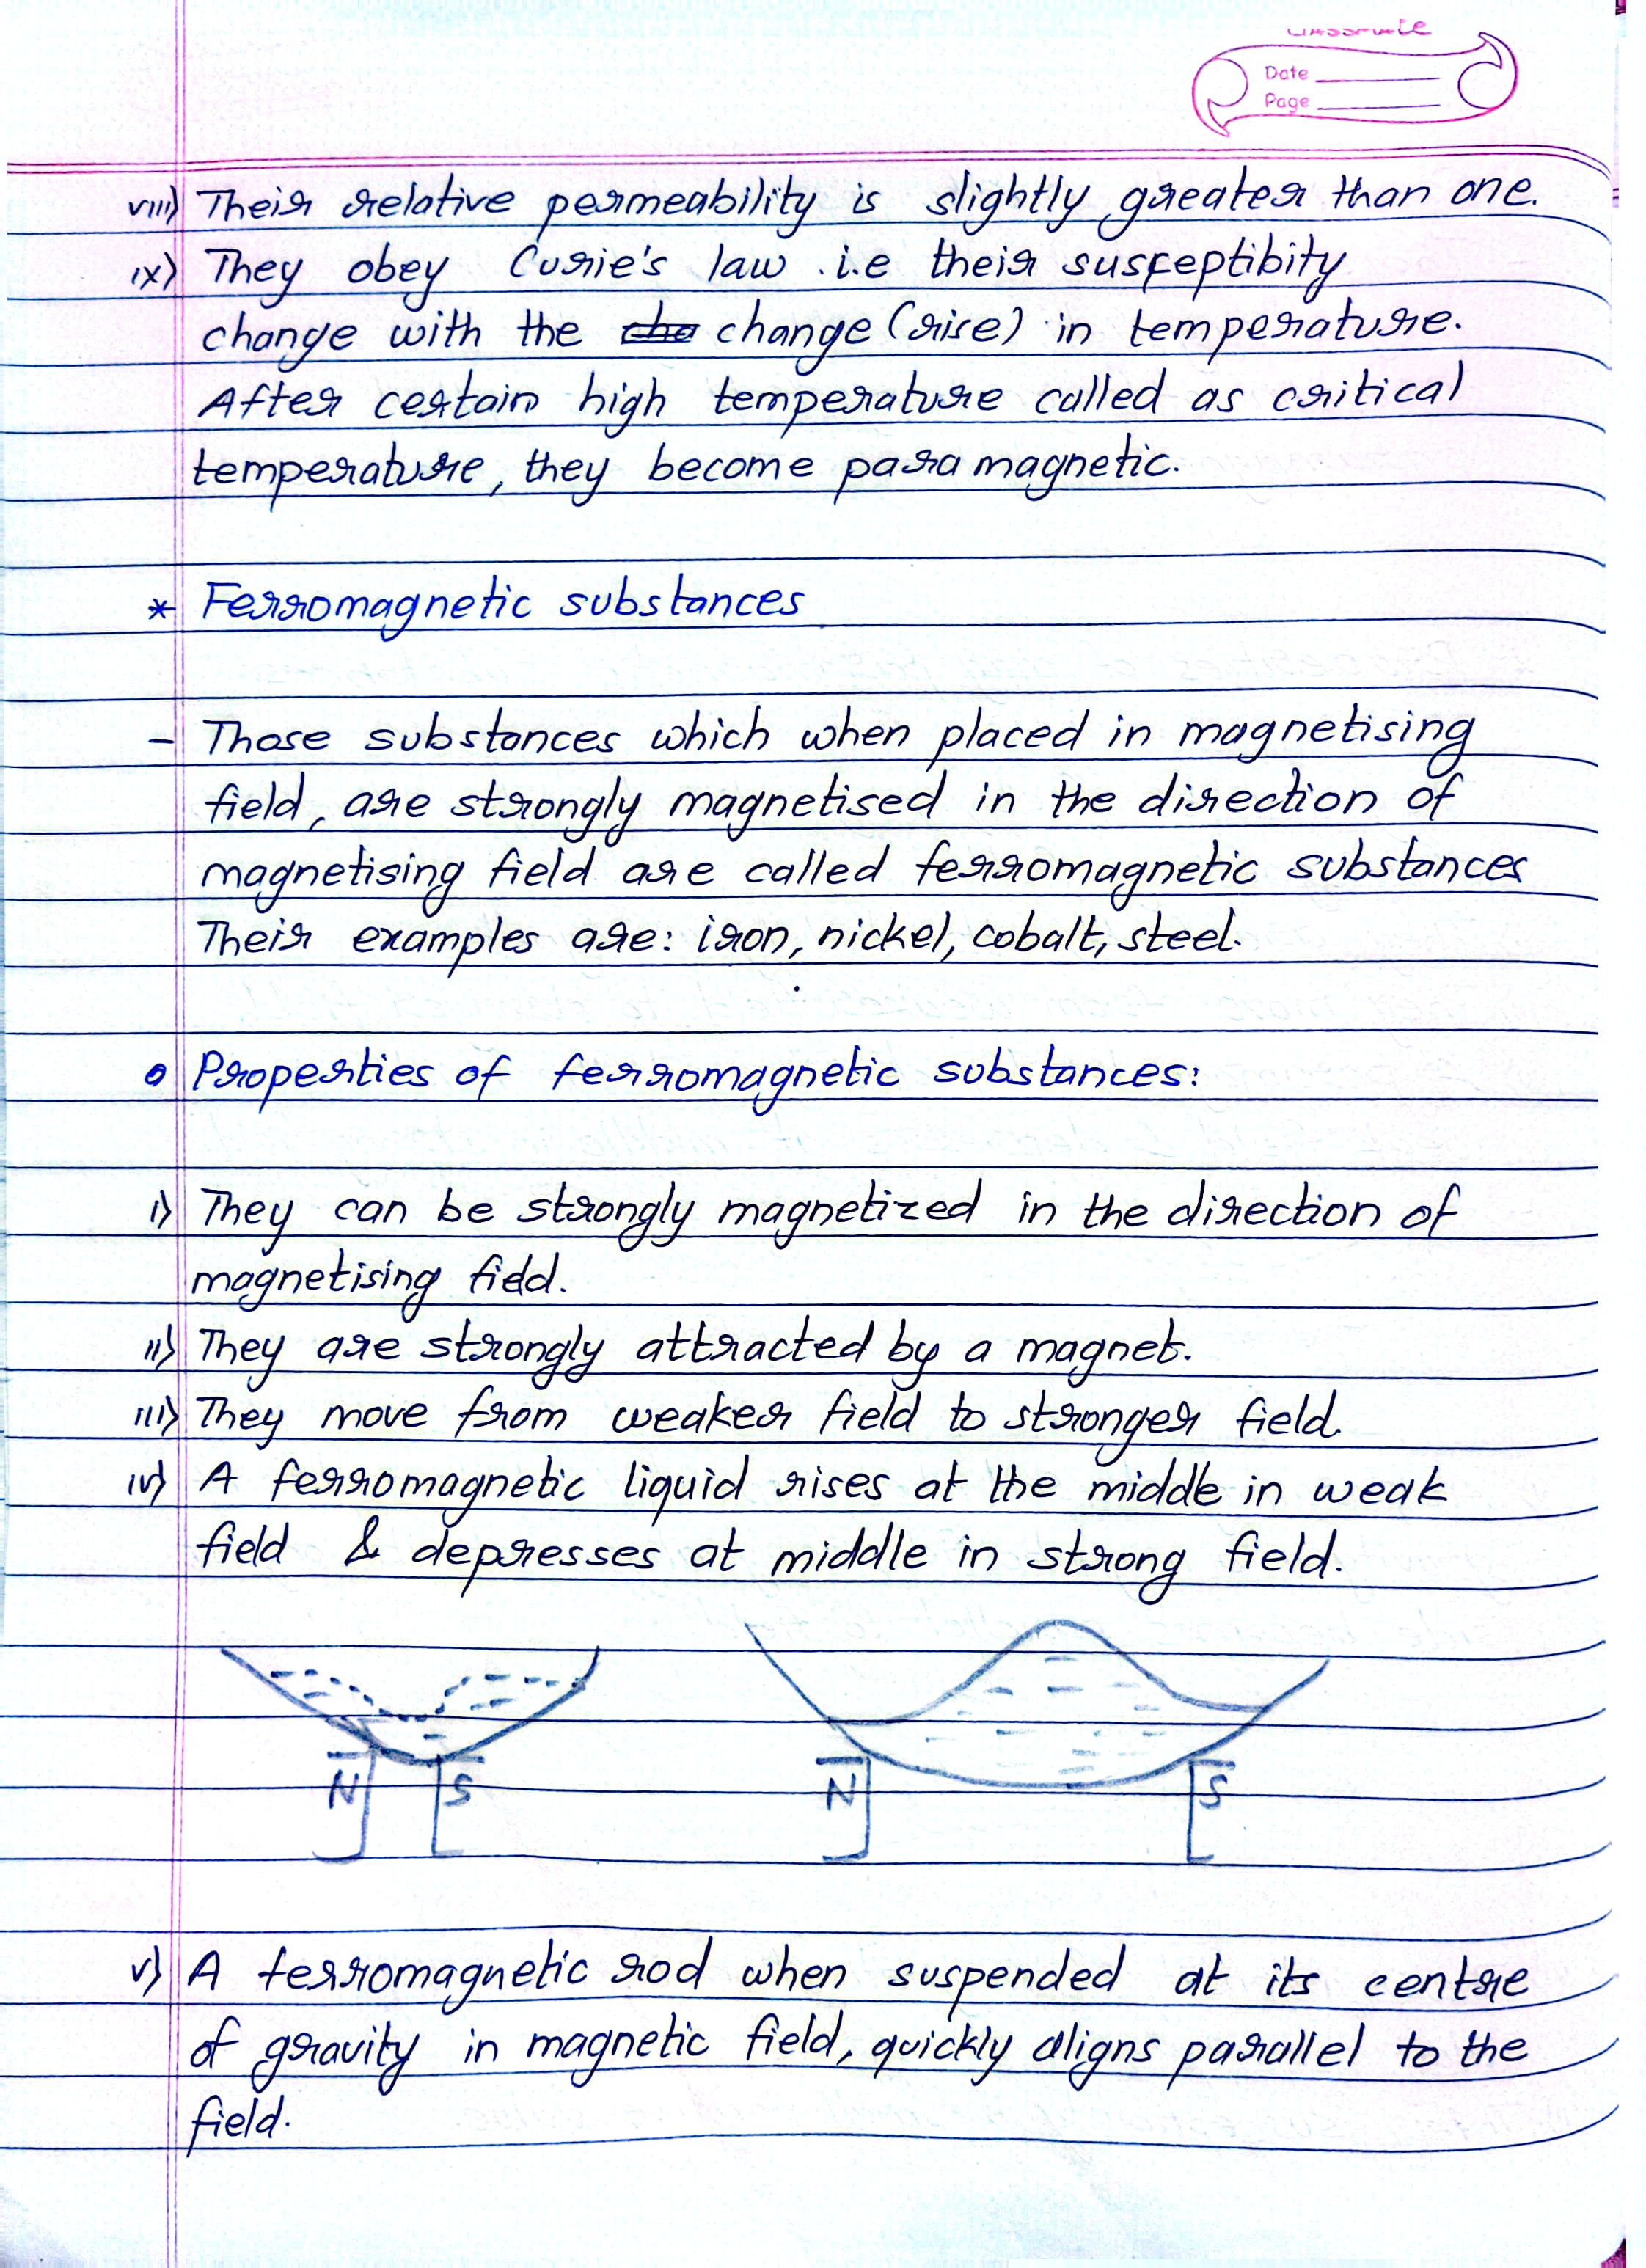 classmate
Date
Page
viii) Their relative permeability is slightly greater than one.
ix) They obey Curie's law .i.e their susceptibity
change with the cha change (rise) in temperature.
After certain high temperature called as critical
temperature, they become para magnetic.
* Ferromagnetic substances
- Those substances which when placed in magnetising
field, are strongly magnetised in the direction of
magnetising field are called ferromagnetic substances
Their examples are: iron, nickel, cobalt, steel.
o Properties of ferromagnetic substances:
i) They can be strongly magnetized in the direction of
magnetising field.
ii) They are strongly attracted by a magnet.
iii) They move from weaker field to stronger field.
iv) A ferromagnetic liquid rises at the middle in weak
field & depresses at middle in strong field.
N S N S
v) A ferromagnetic rod when suspended at its centre
of gravity in magnetic field, quickly aligns parallel to the
field.